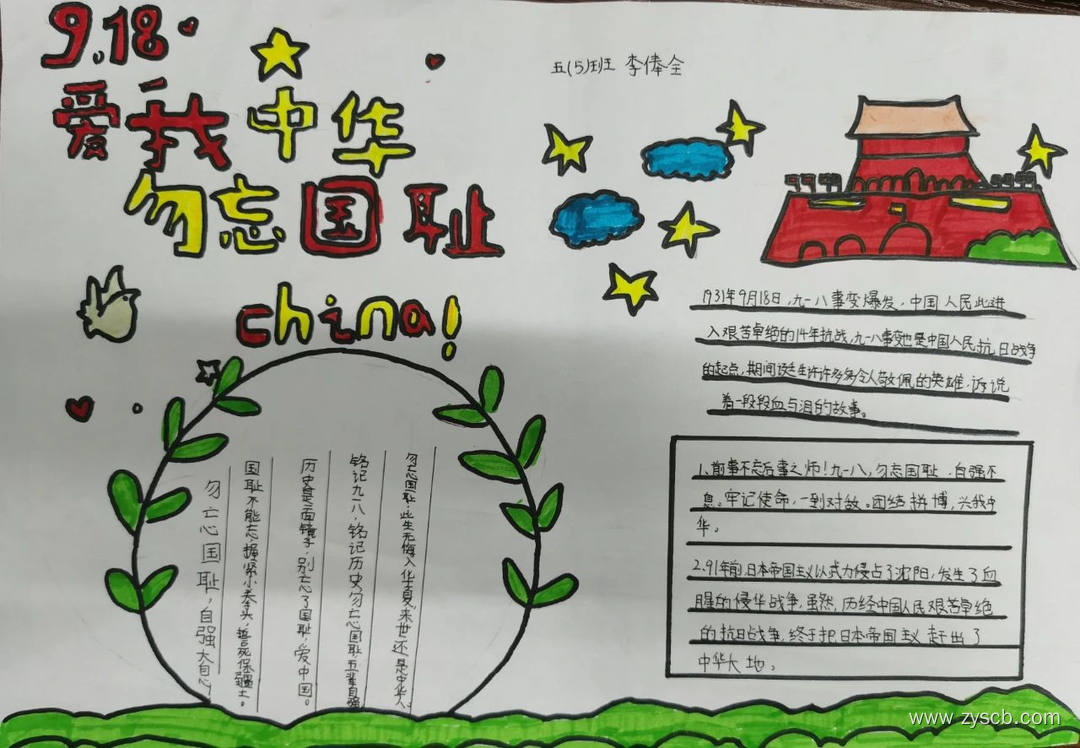 9.18
爱我中华
勿忘国耻
china!
五(5)班 李俸全
1931年9月18日,九一八事变爆发,中国人民此进
入艰苦卓绝的14年抗战,九一八事变也是中国人民抗日战争
的起点,期间诞生许许多多令人敬佩的英雄,诉说
着一段段血与泪的故事。
1.前事不忘后事之师!九一八,勿忘国耻,自强不
息。牢记使命,一到对敌。团结拼博,兴我中
华。
2.91年前,日本帝国主义以武力侵占了沈阳,发生了血
腥的侵华战争,虽然,历经中国人民艰苦卓绝
的抗日战争,终于把日本帝国主义赶出了
中华大地。
勿忘国耻,此生无悔入华夏来世还是中华人
铭记九一八,铭记历史勿忘国耻,五辈自强
历史是面镜子,别忘了国耻,爱中国。
国耻不能忘,握紧小拳头,誓死保疆土。
勿亡心国耻,自强大自心
www.zyscb.com